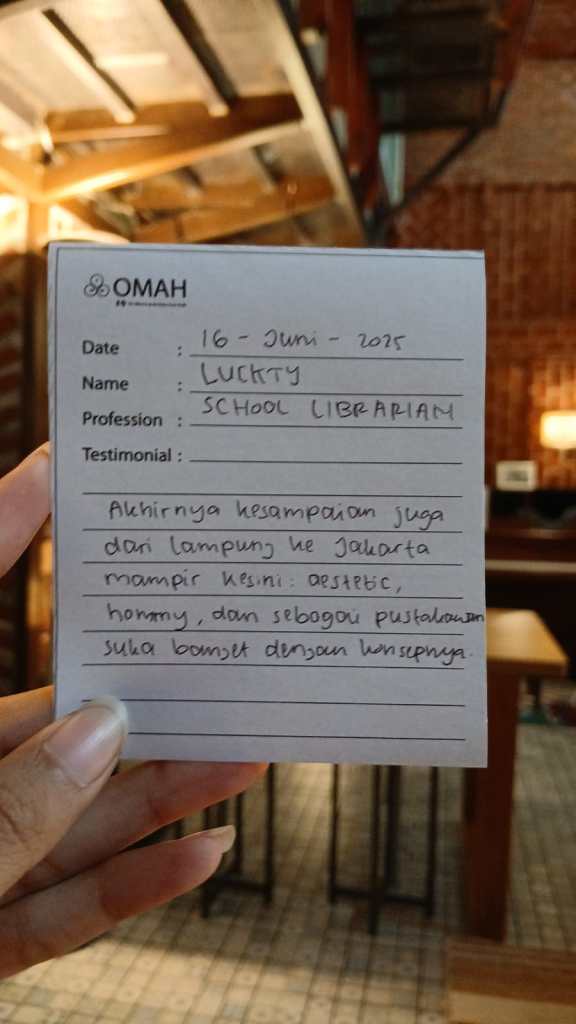 OMAH
Date : 16 - Juni - 2025
Name : LUCKTY
Profession : SCHOOL LIBRARIAN
Testimonial :
Akhirnya kesampaian juga
dari Lampung ke Jakarta
mampir kesini: aestetic,
hommy, dan sebagai pustakawan
suka banget dengan konsepnya.